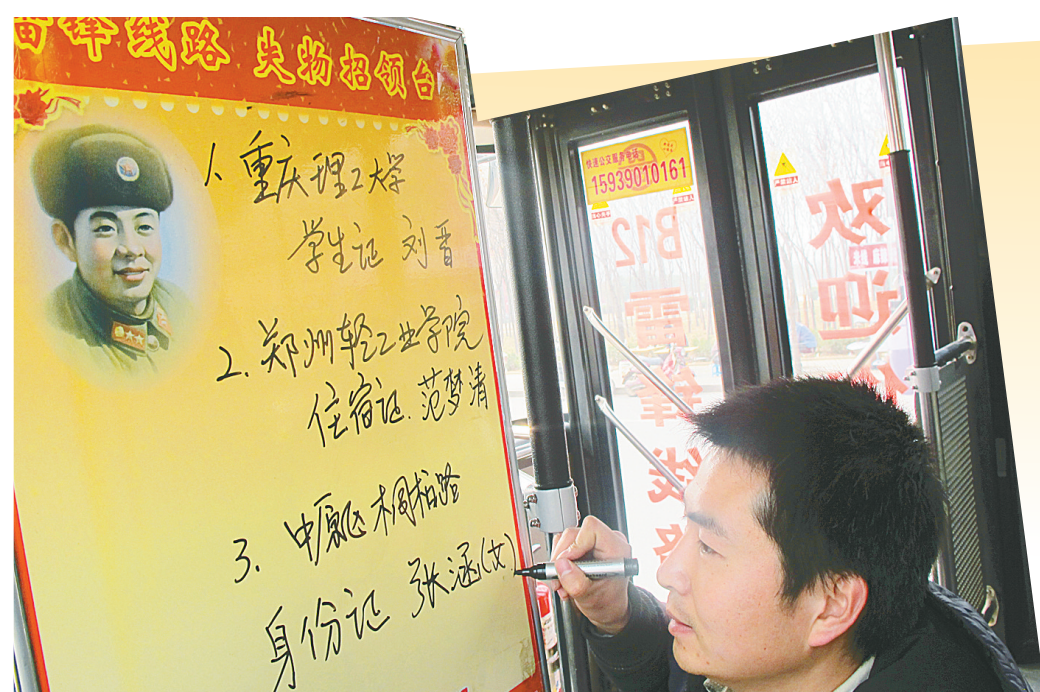 雷锋线路 失物招领台
1、重庆理工大学
学生证 刘晋
2、郑州轻工业学院
住宿证、范梦清
3. 中原区桐柏路
身份证 张涵(女)
快速公交服务电话
15939010161
B12
雷锋线路
欢迎